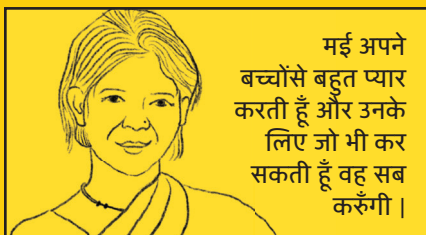 मई अपने
बच्चोंसे बहुत प्यार
करती हूँ और उनके
लिए जो भी कर
सकती हूँ वह सब
करुँगी |